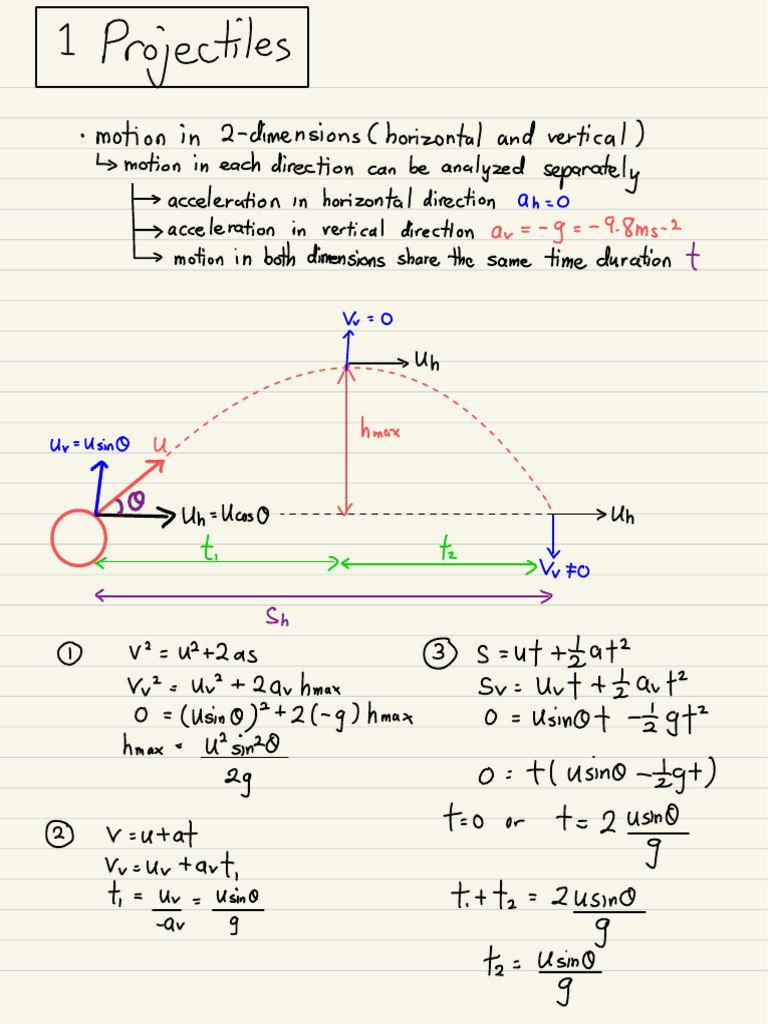 1 Projectiles
• motion in 2-dimensions (horizontal and vertical)
↳ motion in each direction can be analyzed separately
→ acceleration in horizontal direction a_h = 0
→ acceleration in vertical direction a_v = -g = -9.8ms-2
→ motion in both dimensions share the same time duration t
V_v = 0
u_h
h_max
u_v = u sinθ
u
θ
u_h = u cosθ
u_h
t_1
t_2
V_v ≠ 0
S_h
① V² = u² + 2as
V_v² = u_v² + 2a_v h_max
0 = (u sinθ)² + 2(-g) h_max
h_max = u² sin²θ / 2g
② V = u + at
V_v = u_v + a_v t_1
t_1 = u_v / -a_v = u sinθ / g
③ S = ut + ½at²
S_v = u_v t + ½ a_v t²
0 = u sinθt - ½gt²
0 = t(u sinθ - ½gt)
t=0 or t = 2 u sinθ / g
t_1 + t_2 = 2 u sinθ / g
t_2 = u sinθ / g